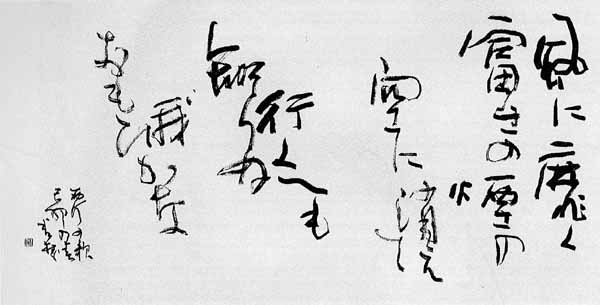 風に靡く
富士の煙の
空に消えて
行くへも
知らぬ
我かな
おもひ
西行の歌